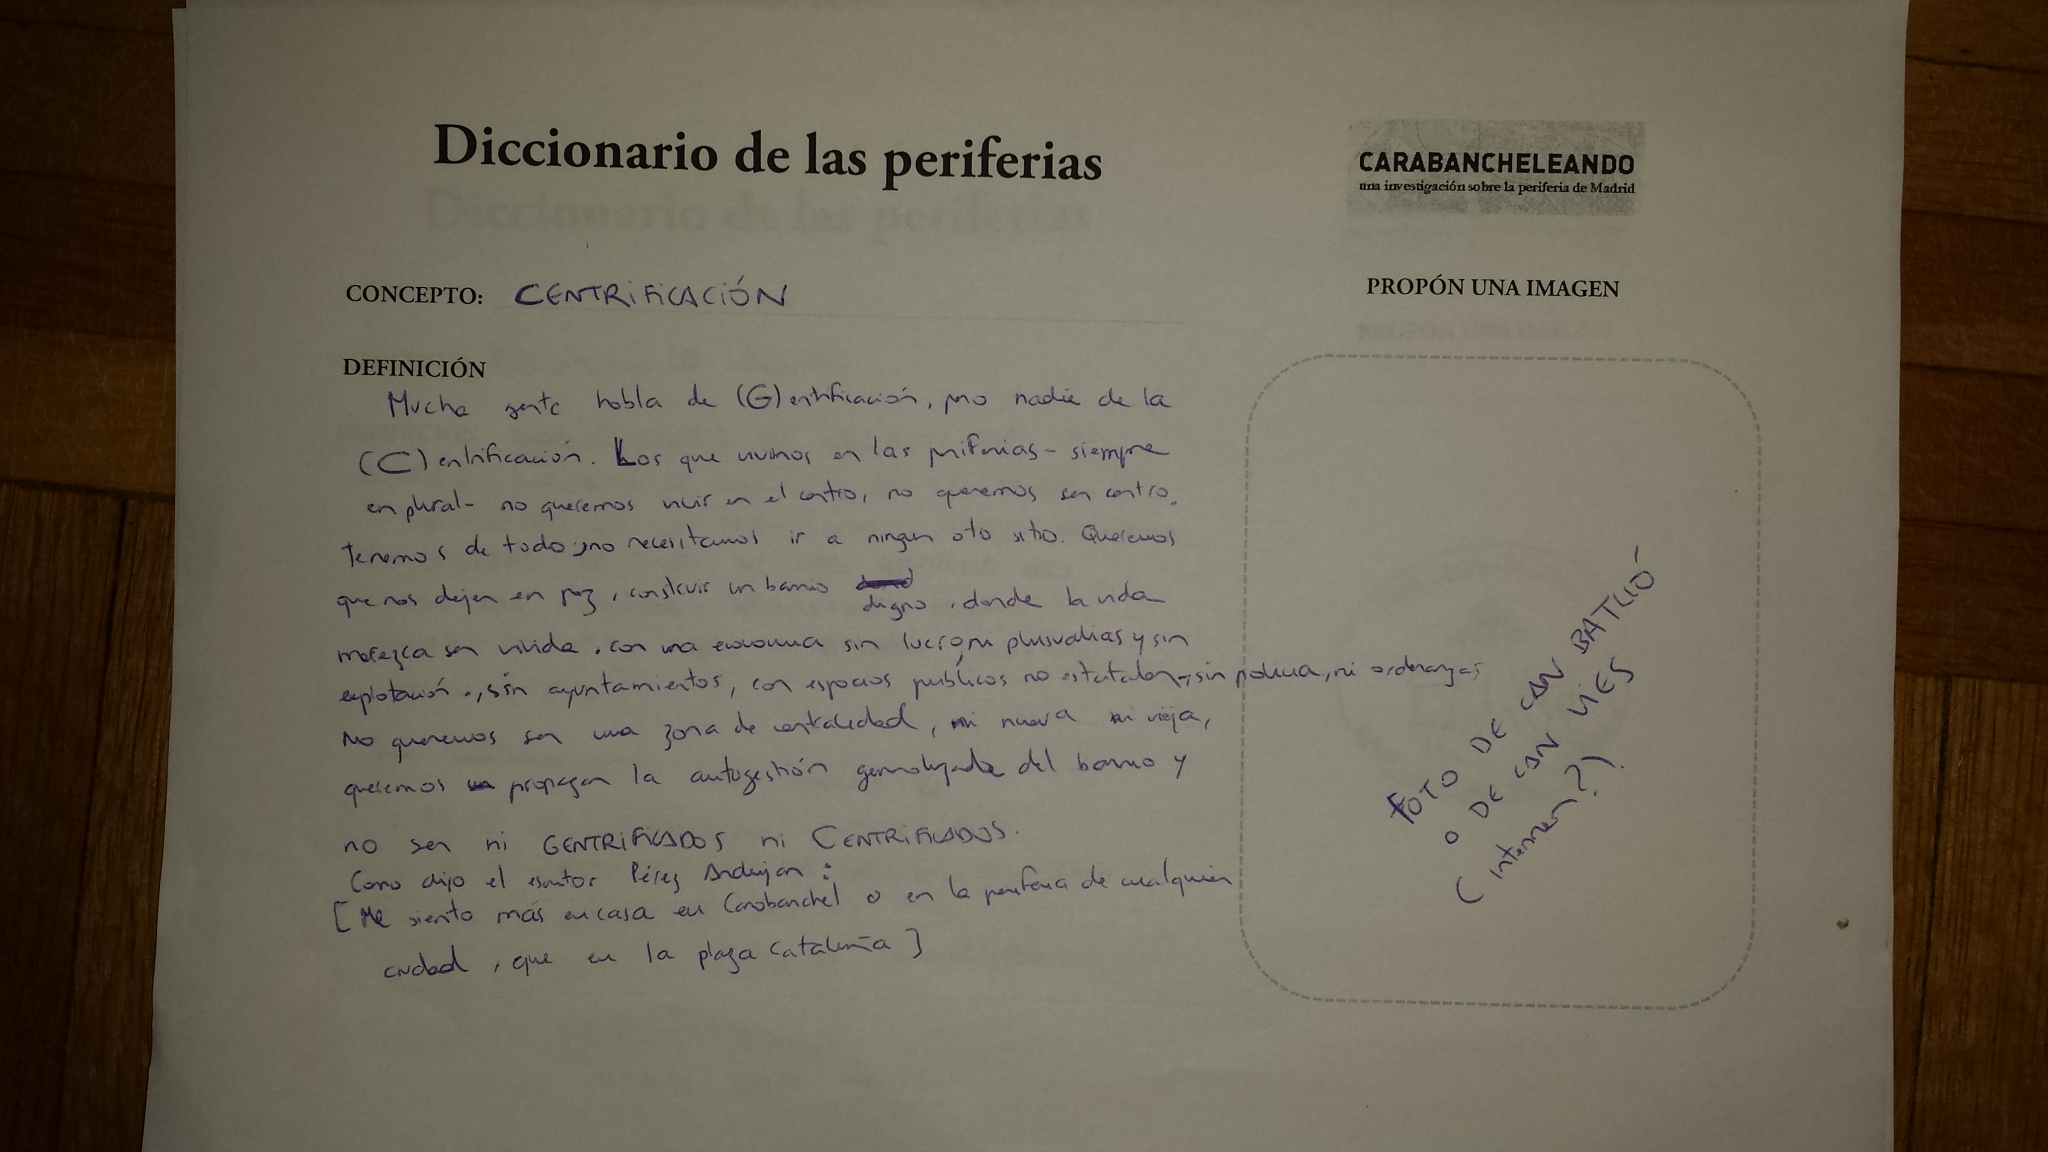 Diccionario de las periferias
CARABANCHELEANDO
una investigación sobre la periferia de Madrid
CONCEPTO: CENTRIFICACIÓN
DEFINICIÓN
Mucha gente habla de (G)entrificación, pero nadie de la
(C)entrificación. Los que vivimos en las periferias - siempre
en plural - no queremos vivir en el centro, no queremos ser centro.
Tenemos de todo, no necesitamos ir a ningun otro sitio. Queremos
que nos dejen en paz, construir un barrio digno, donde la vida
merezca ser vivida, con una economia sin lucro, ni plusvalias y sin
explotación, sin ayuntamientos, con espacios públicos no estatales, sin policia, ni ordenanzas
No queremos ser una zona de centralidad, ni nueva ni vieja,
queremos propagar la autogestión generalizada del barrio y
no ser ni GENTRIFICADOS ni CENTRIFICADOS.
Como dijo el escritor Pérez Andujar:
[Me siento más en casa en Carabanchel o en la periferia de cualquier
ciudad, que en la plaza Cataluña]
PROPÓN UNA IMAGEN
FOTO DE CAN BATLLÓ
O DE CAN VIES
(internet?)